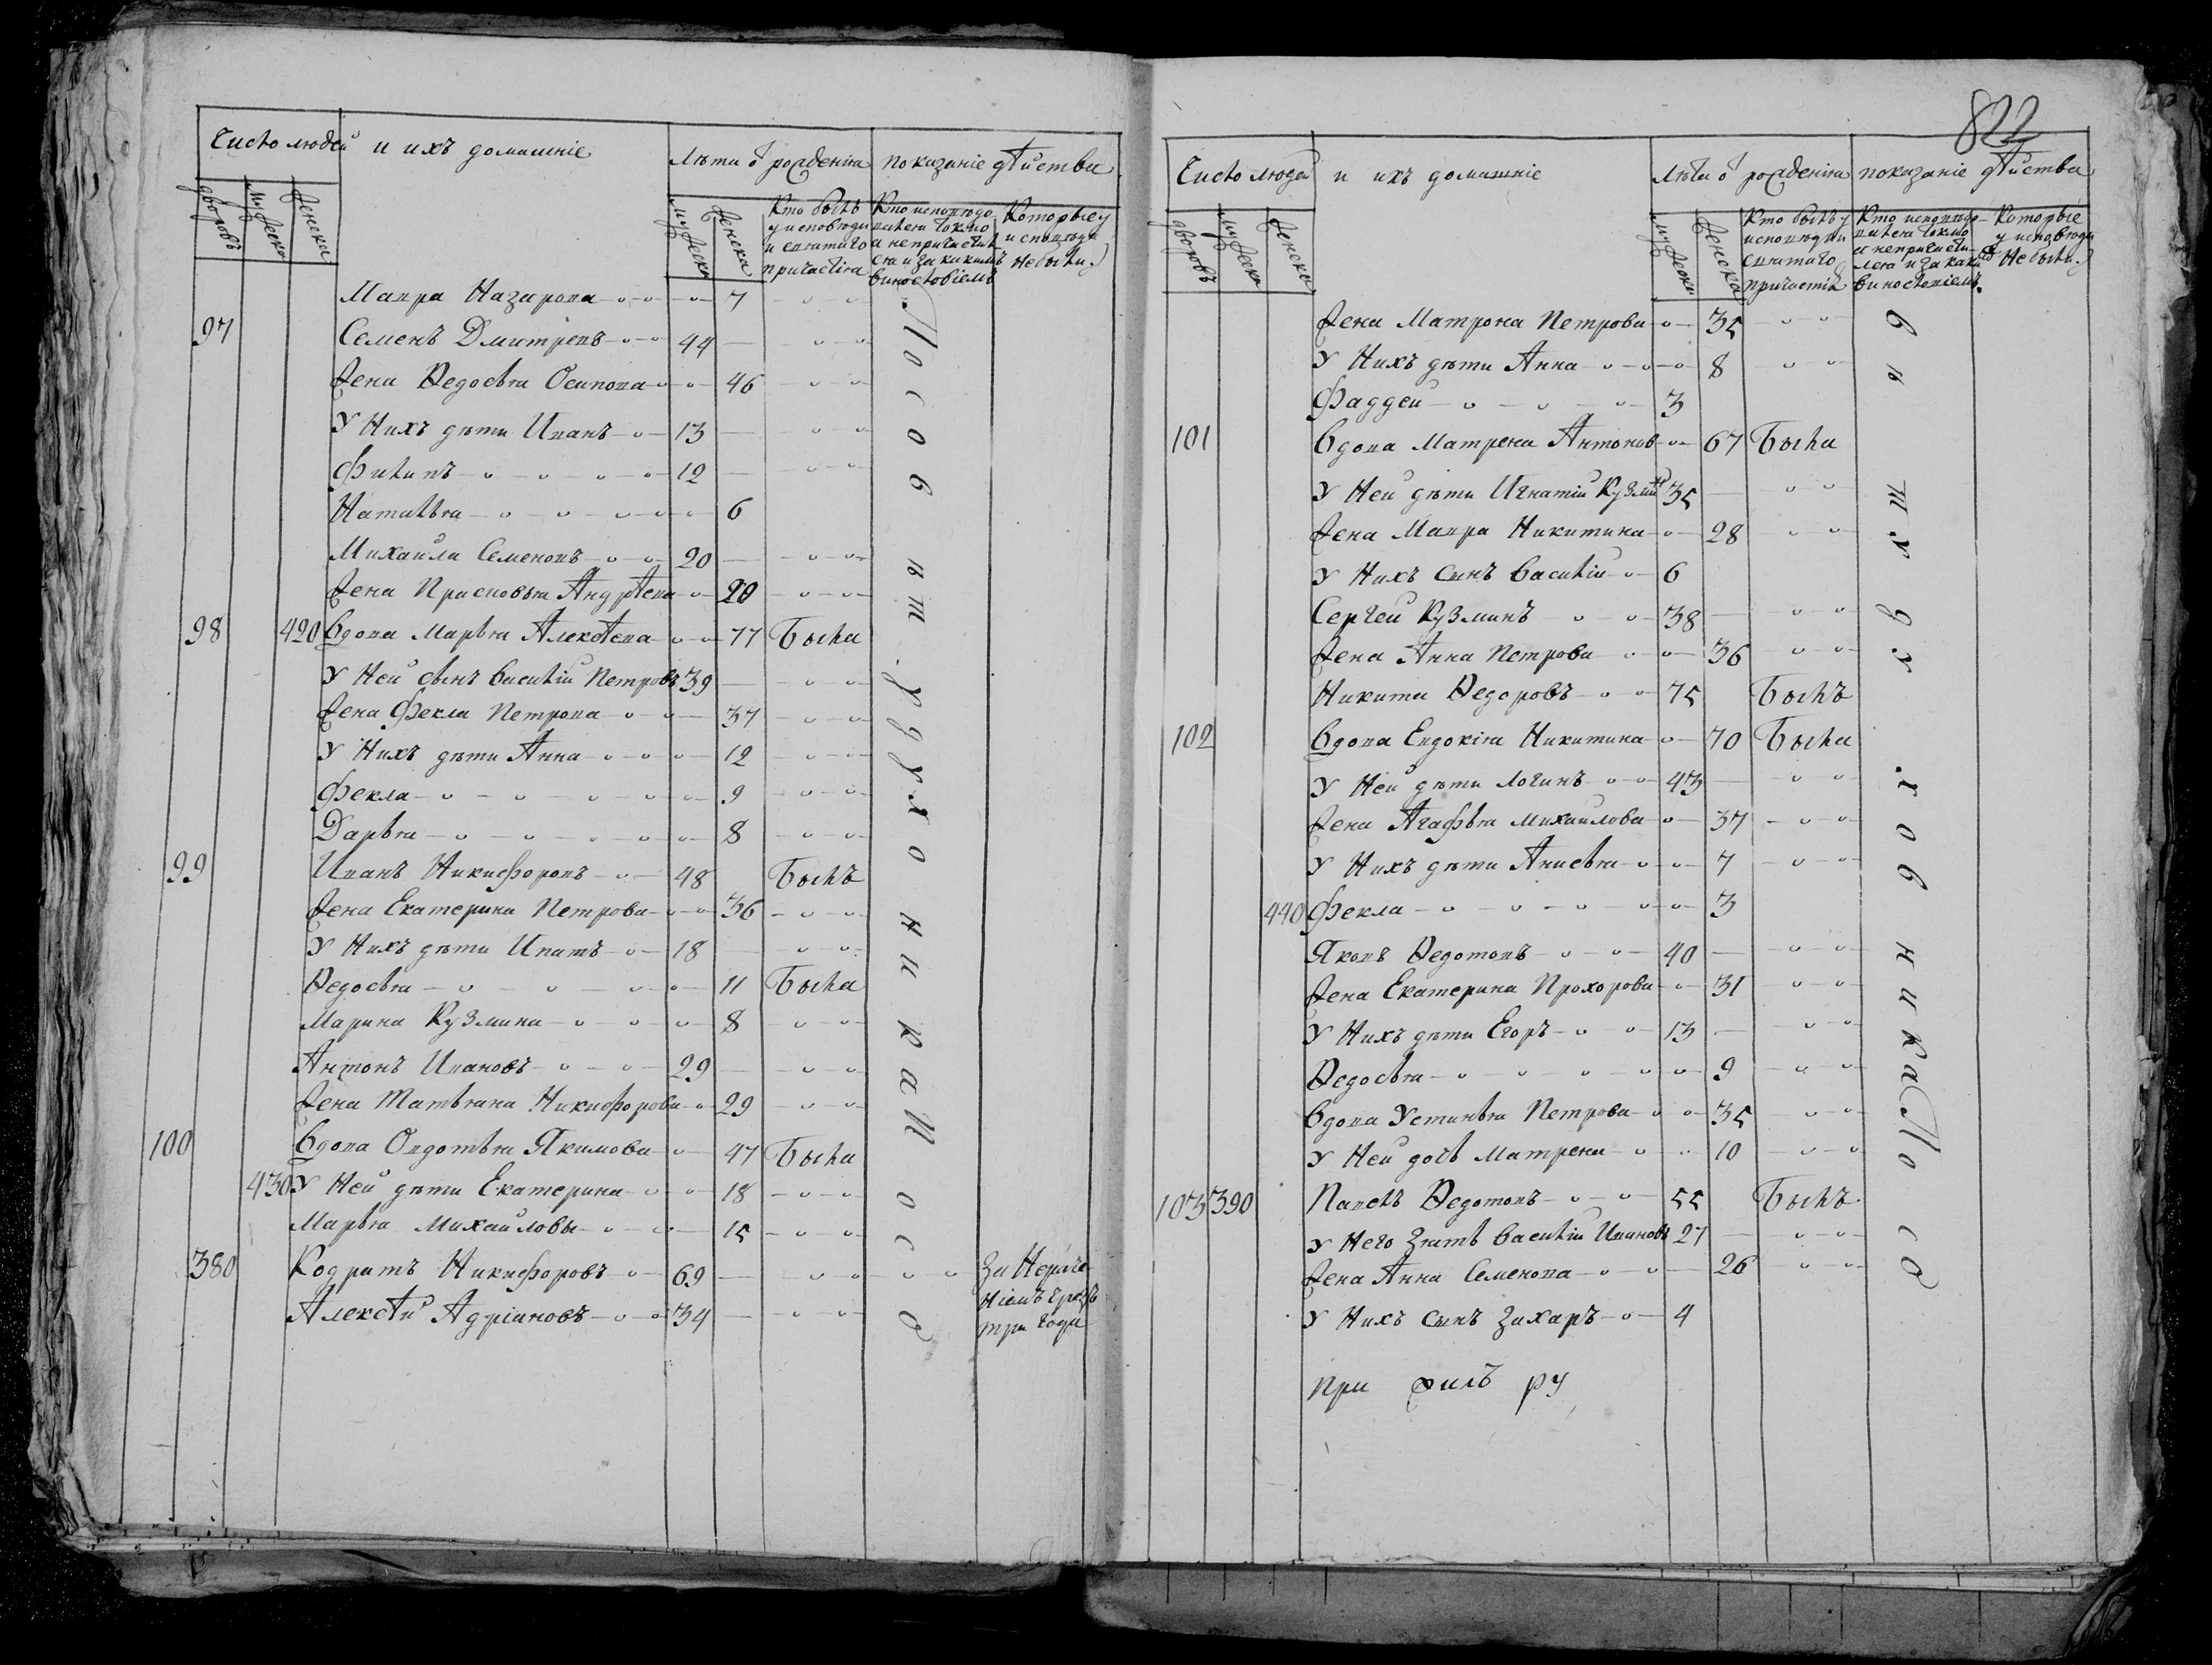 Число людей и ихъ домашніе Лѣта ѿ рожденія показаніе дѣйства
дворовъ мужеска женска мужеска женска
Кто былъ у исповѣди и святаго причастія
Кто исповѣдовался токмо а не причастился и за какимъ винословіемъ
Которые у исповѣди не были
Мавра Назарова 7
97 Семенъ Дмитревъ 44
Жена Ѳедосья Осипова 46
У Нихъ дѣти Иванъ 13
Филипъ 12
Наталья 6
Михайла Семеновъ 20
Жена Прасковья Андрѣева 20
98 420 Вдова Марья Алексѣева 77 Была
У Ней сынъ Василій Петровъ 39
Жена Фекла Петрова 37
У Нихъ дѣти Анна 12
Фекла 9
Дарья 8
99 Иванъ Никифоровъ 48 Былъ
Жена Екатерина Петрова 36
У Нихъ дѣти Ипатъ 18
Ѳедосья 11 Была
Марина Кузмина 8
Антонъ Ивановъ 29
Жена Татьяна Никифорова 29
100 Вдова Овдотья Якимова 47 Была
430 У Ней дѣти Екатерина 18
Марья Михайловы 15
380 Кодратъ Никифоровъ 69 За Нераче
Алексѣй Адріановъ 34 ніемъ чрезъ
три годы
822
Число людей и ихъ домашніе Лѣта ѿ рожденія показаніе дѣйства
дворовъ мужеска женска мужеска женска
Кто былъ у исповѣди и святаго причастія
Кто исповѣдовался токмо а не причастился и за какимъ винословіемъ
Которые у исповѣди Не были
Жена Матрона Петрова 35
У Нихъ дѣти Анна 8
Фаддей 3
101 Вдова Матрена Антонов 67 Была
У Ней дѣти Игнатій Кузмин 35
Жена Мавра Никитина 28
У Нихъ сынъ Василій 6
Сергей Кузминъ 38
Жена Анна Петрова 36
Никита Ѳедоровъ 75 Былъ
102 Вдова Евдокія Никитина 70 Была
У Ней дѣти Логинъ 43
Жена Агафья Михайлова 37
У Нихъ дѣти Анисья 7
440 Фекла 3
Яковъ Ѳедотовъ 40
Жена Екатерина Прохорова 31
У Нихъ дѣти Егоръ 13
Ѳедосья 9
Вдова Устинья Петрова 35
У Ней дочь Матрена 10
103 390 Павелъ Ѳедотовъ 55 Былъ
У Него Зять Василій Ивановъ 27
Жена Анна Семенова 26
У Нихъ сынъ Захаръ 4
При ѳилъ ру